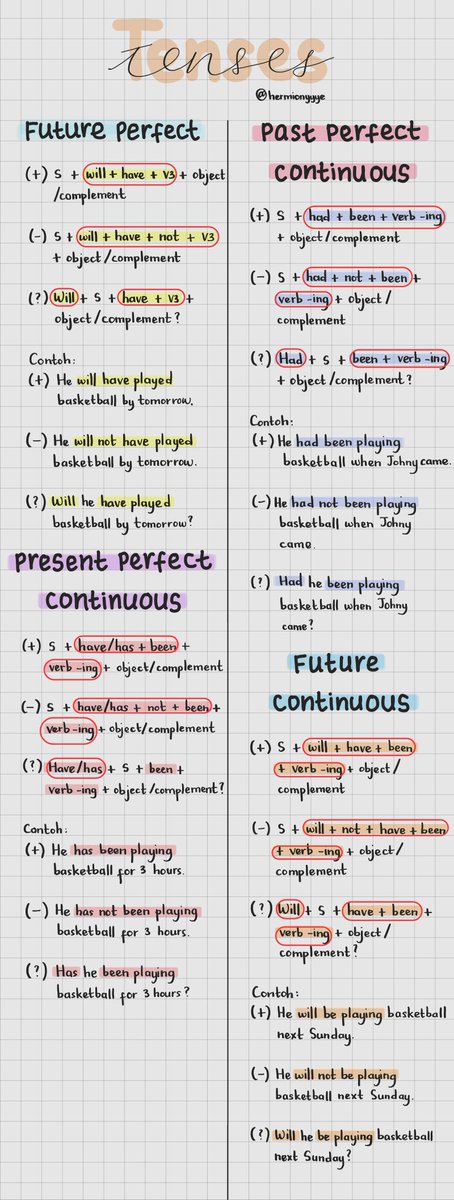 Tenses
tenses
@hermionyyye
Future Perfect
(+) S + will + have + V3 + object
/complement
(-) S + will + have + not + V3
+ object/complement
(?) Will + S + have + V3 +
object/complement?
Contoh:
(+) He will have played
basketball by tomorrow.
(-) He will not have played
basketball by tomorrow.
(?) Will he have played
basketball by tomorrow?
Present Perfect
Continuous
(+) S + have/has + been +
verb -ing + object/complement
(-) S + have/has + not + been +
verb -ing + object/complement
(?) Have/has + S + been +
verb -ing + object/complement?
Contoh:
(+) He has been playing
basketball for 3 hours.
(-) He has not been playing
basketball for 3 hours.
(?) Has he been playing
basketball for 3 hours?
Past Perfect
Continuous
(+) S + had + been + verb -ing
+ object/complement
(-) S + had + not + been +
verb -ing + object/
complement
(?) Had + S + been + verb -ing
+ object/complement?
Contoh:
(+) He had been playing
basketball when Johny came.
(-) He had not been playing
basketball when Johny
came.
(?) Had he been playing
basketball when Johny
came?
Future
Continuous
(+) S + will + have + been
+ verb -ing + object/
complement
(-) S + will + not + have + been
+ verb -ing + object/
complement
(?) Will + S + have + been +
verb -ing + object/
complement?
Contoh:
(+) He will be playing basketball
next Sunday.
(-) He will not be playing
basketball next Sunday.
(?) Will he be playing basketball
next Sunday?